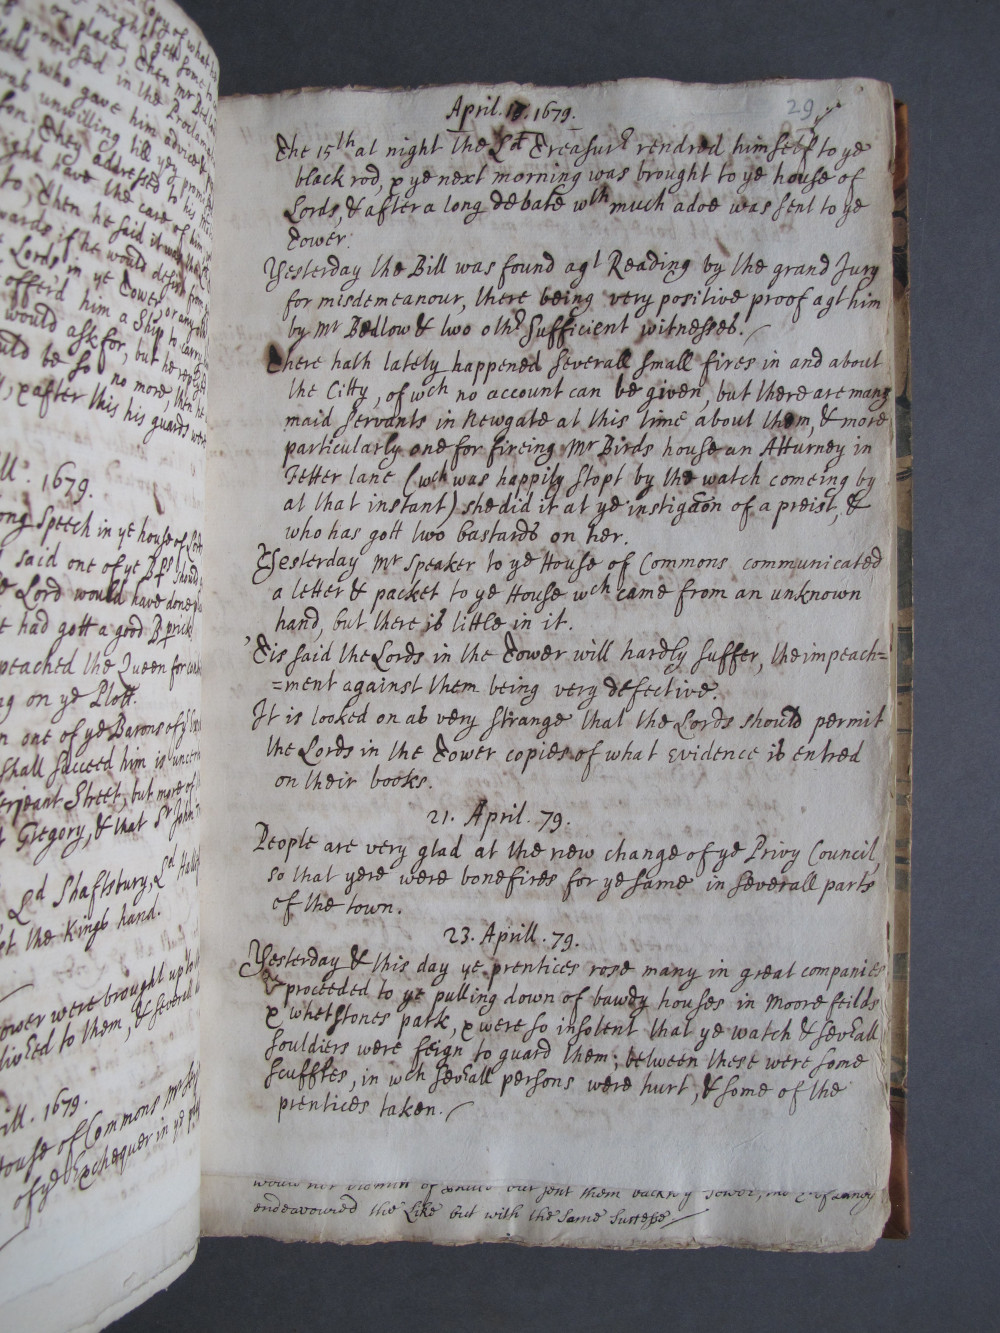 might gett some
or place, then Mr Bed
promised in the Proclama
who gave him advice
unwilling till yey prom
they addressed to his
have the care of him
to, then he said it was
wards if he would desist from
Lords in ye Tower, or any
offerd him a Ship to carry
would ask for, but he reply
uld be so no more, then he
, & after this his guards were
ll. 1679.
ong Speech in ye house of Lords
said one of ye Bps should
e Lord would have done
e had gott a good B prick
peached the Queen for
ng on ye Plott.
n one of ye Barons of ye
shall succeed him is uncert
erjeant Street, but more of
t Gregory, & that Sr John
Ld Shaftsbury, Ld Hallif
et the Kings hand.
ower were brought up to
livered to them, & severall
ill. 1679.
house of Commons Mr
of ye Exchequer in ye
29
April. 18. 1679.
The 15th at night the Ld Treasurr rendred himself to ye
black rod, & ye next morning was brought to ye house of
Lords, & after a long debate wth much adoe was sent to ye
Tower.
Yesterday the Bill was found agt Reading by the grand Jury
for misdemeanour, there being very positive proof agt him
by Mr Bedlow & two othr sufficient witnesses.
There hath lately happened severall small fires in and about
the Citty, of wch no account can be given, but there are many
maid servants in Newgate at this time about them, & more
particularly one for fireing Mr Birds house an Atturney in
Fetter lane (wch was happily stopt by the watch comeing by
at that instant) she did it at ye instigaon of a preist, &
who has gott two bastards on her.
Yesterday Mr Speaker to ye House of Commons communicated
a letter & packet to ye House wch came from an unknown
hand, but there is little in it.
'Tis said the Lords in the Tower will hardly suffer, the impeach=
=ment against them being very defective.
It is looked on as very strange that the Lords should permit
the Lords in the Tower copies of what evidence is entred
on their books.
21. April. 79.
People are very glad at the new change of ye Privy Council,
so that yere were bonefires for ye same in severall parts
of the town.
23. Aprill. 79.
Yesterday & this day ye prentices rose many in great companies
& proceeded to ye pulling down of bawdy houses in Moore feilds
& whetstones park, & were so insolent that ye watch & sevrall
souldiers were feign to guard them; between these were some
scuffles, in wch sevrall persons were hurt, & some of the
prentices taken.
would not of but sent them back by
endeavoured the Like but with the same Suctesse